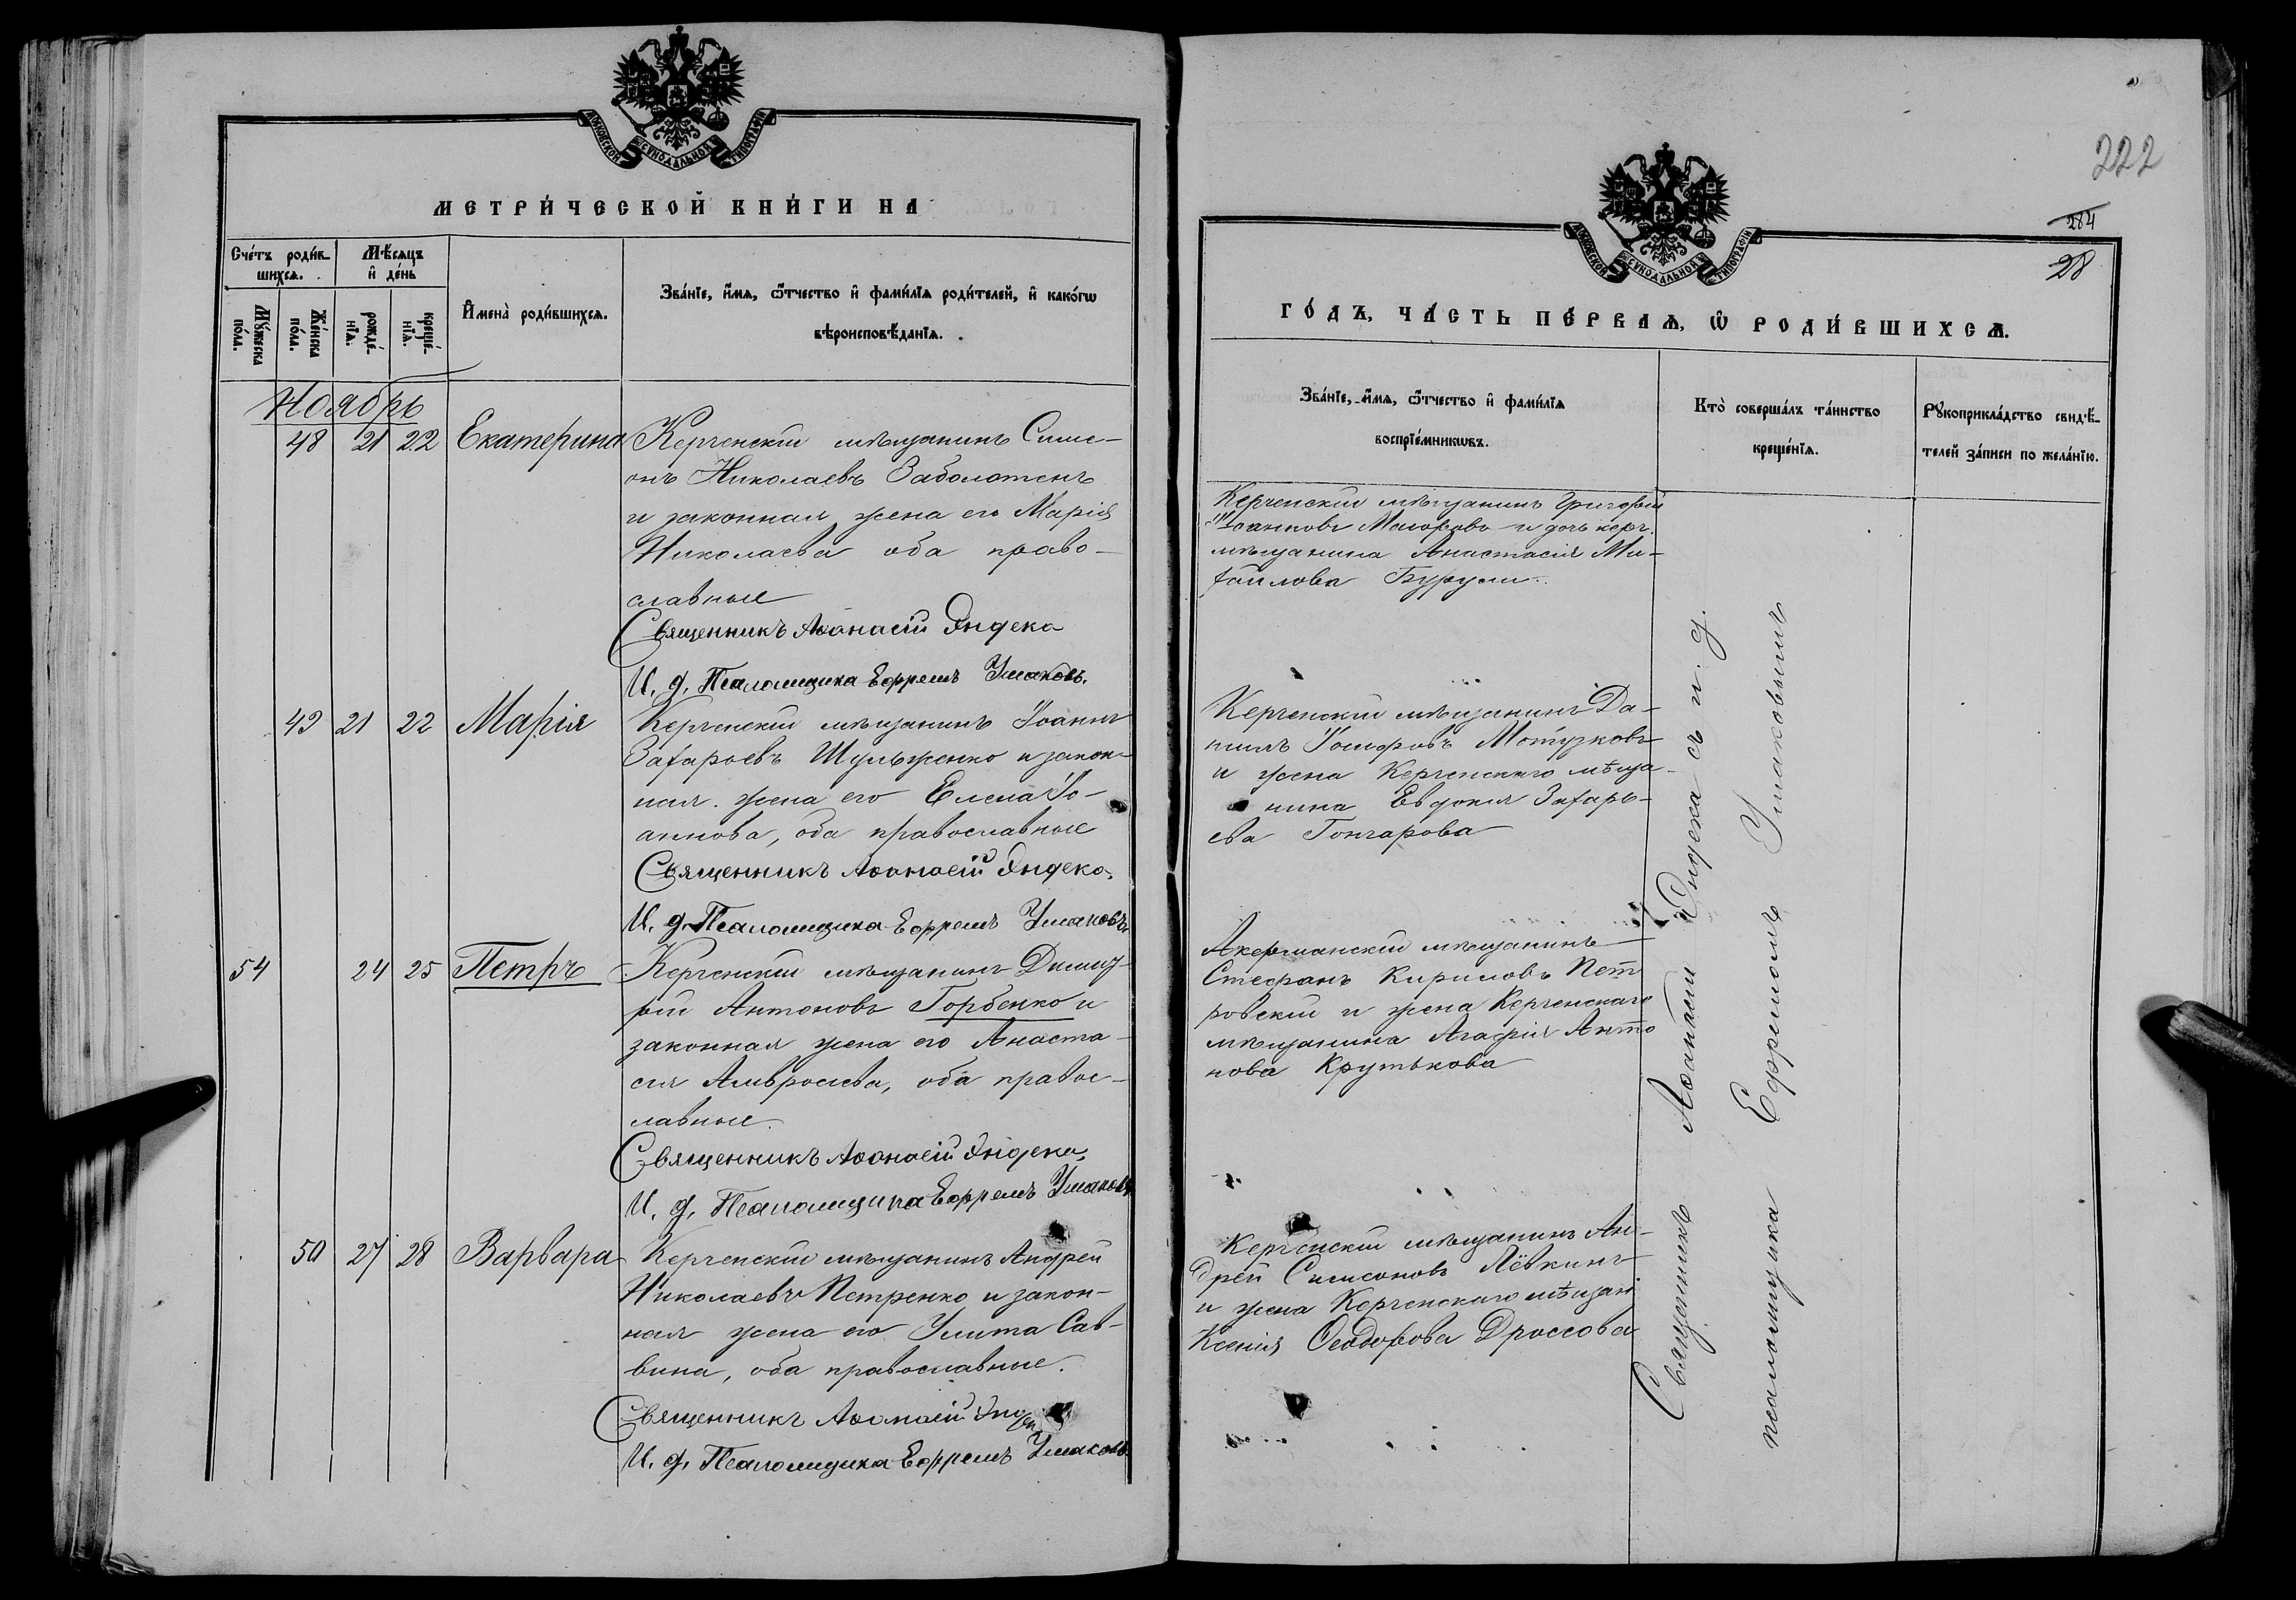 МОСКОВСКОЙ СѴНОДАЛЬНОЙ ТИПОГРАФІИ
МЕТРИ́ЧЕСКОЙ КНИ́ГИ НА
Сче́тъ роди́в-
шихсѧ.
Мѣ́сѧцъ
и҆ де́нь
Мꙋ́жеска
по́ла.
Же́нска
по́ла.
рожде́-
нїѧ.
креще́-
нїѧ.
И҆мена̀ роди́вшихсѧ.
Зва́нїе, и҆́мѧ, ѻ҆́тчество и҆ фамі́лїѧ роди́телей, и҆ како́гѡ
вѣроисповѣ́данїѧ.
Ноябрь
48 21 22 Екатерина Керченскій мѣщанинъ Симе-
онъ Николаевъ Заболотенъ
и законная жена его Марія
Николаева оба право-
славные
Священникъ Аѳанасій Эндека
И. д. Псаломщика Ефремъ Ушаковъ.
49 21 22 Марія Керченскій мѣщанинъ Іоаннъ
Захарьевъ Шульженко и закон-
ная жена его Елена Іо-
аннова, оба православные
Священникъ Аѳанасій Эндека.
И. д. Псаломщика Ефремъ Ушаковъ
54 24 25 Петръ Керченскій мѣщанинъ Димит-
рій Антоновъ Горбенко и
законная жена его Анаста-
сія Амвросіева, оба правос-
лавные.
Священникъ Аѳанасій Эндека.
И. д. Псаломщика Ефремъ Ушаковъ
50 27 28 Варвара Керченскій мѣщанинъ Андрей
Николаевъ Петренко и закон-
ная жена его Улита Сав-
вина, оба православные.
Священникъ Аѳанасій
И. д. Псаломщика Ефремъ Ушаковъ
222
284
28
МОСКОВСКОЙ СѴНОДАЛЬНОЙ ТИПОГРАФІИ
ГО́ДЪ, ЧА́СТЬ ПЕ́РВАѦ, Ѡ҆ РОДИ́ВШИХСѦ.
Зва́нїе, и҆́мѧ, ѻ҆́тчество и҆ фамі́лїѧ
воспрїе́мникѡвъ.
Кто̀ соверша́лъ та́инство
креще́нїѧ.
Рꙋкоприкла́дство свидѣ́-
телей за́писи по жела́нїю.
Керченскій мѣщанинъ Григорій
Іоанновъ Маіоровъ и дочь керч.
мѣщанина Анастасія Ми-
хаилова
Керченскій мѣщанинъ Да-
ніилъ Іосифовъ Мотузковъ
и жена Керченскаго мѣща-
нина Евдокія Захарь-
ева Гончарова
Акерманскій мѣщанинъ
Стефанъ Кириловъ Пет
ровскій и жена Керченскаго
мѣщанина Агафія Анто
нова Крутькова
Керченскій мѣщанинъ Ан-
дрей Симеоновъ Лёвкинъ
и жена Керченскаго мѣщан
Ксенія Ѳеодорова Дроссова
Священникъ Аѳанасій Эндека съ и. д.
псаломщика Ефремомъ Ушаковымъ